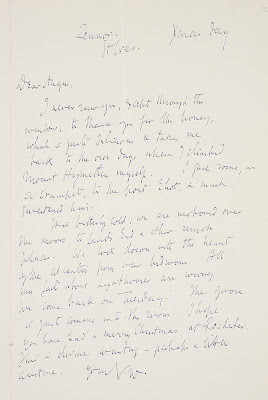 Zennor.
St Ives. Xmas Day
Dear Angus.
I never saw you, except through the
window, to thank you for the honey,
which is quite delicious & takes me
back to the old days, when I climbed
Mount Hymettus myself. I gave some, on
a crumpet, to the poet Eliot, a much
sweetened him.
It is bitterly cold; we are motored over
the moors to Lands End & other remote
places. We look down into the heart
of the Atlantic from our bedroom. All
this just above nightmares are
We come back on Tuesday. The goose
is just coming into the room. I hope
you have had a merry Christmas at Rochester.
This is divine country – perhaps a little
austere. Your V.W.